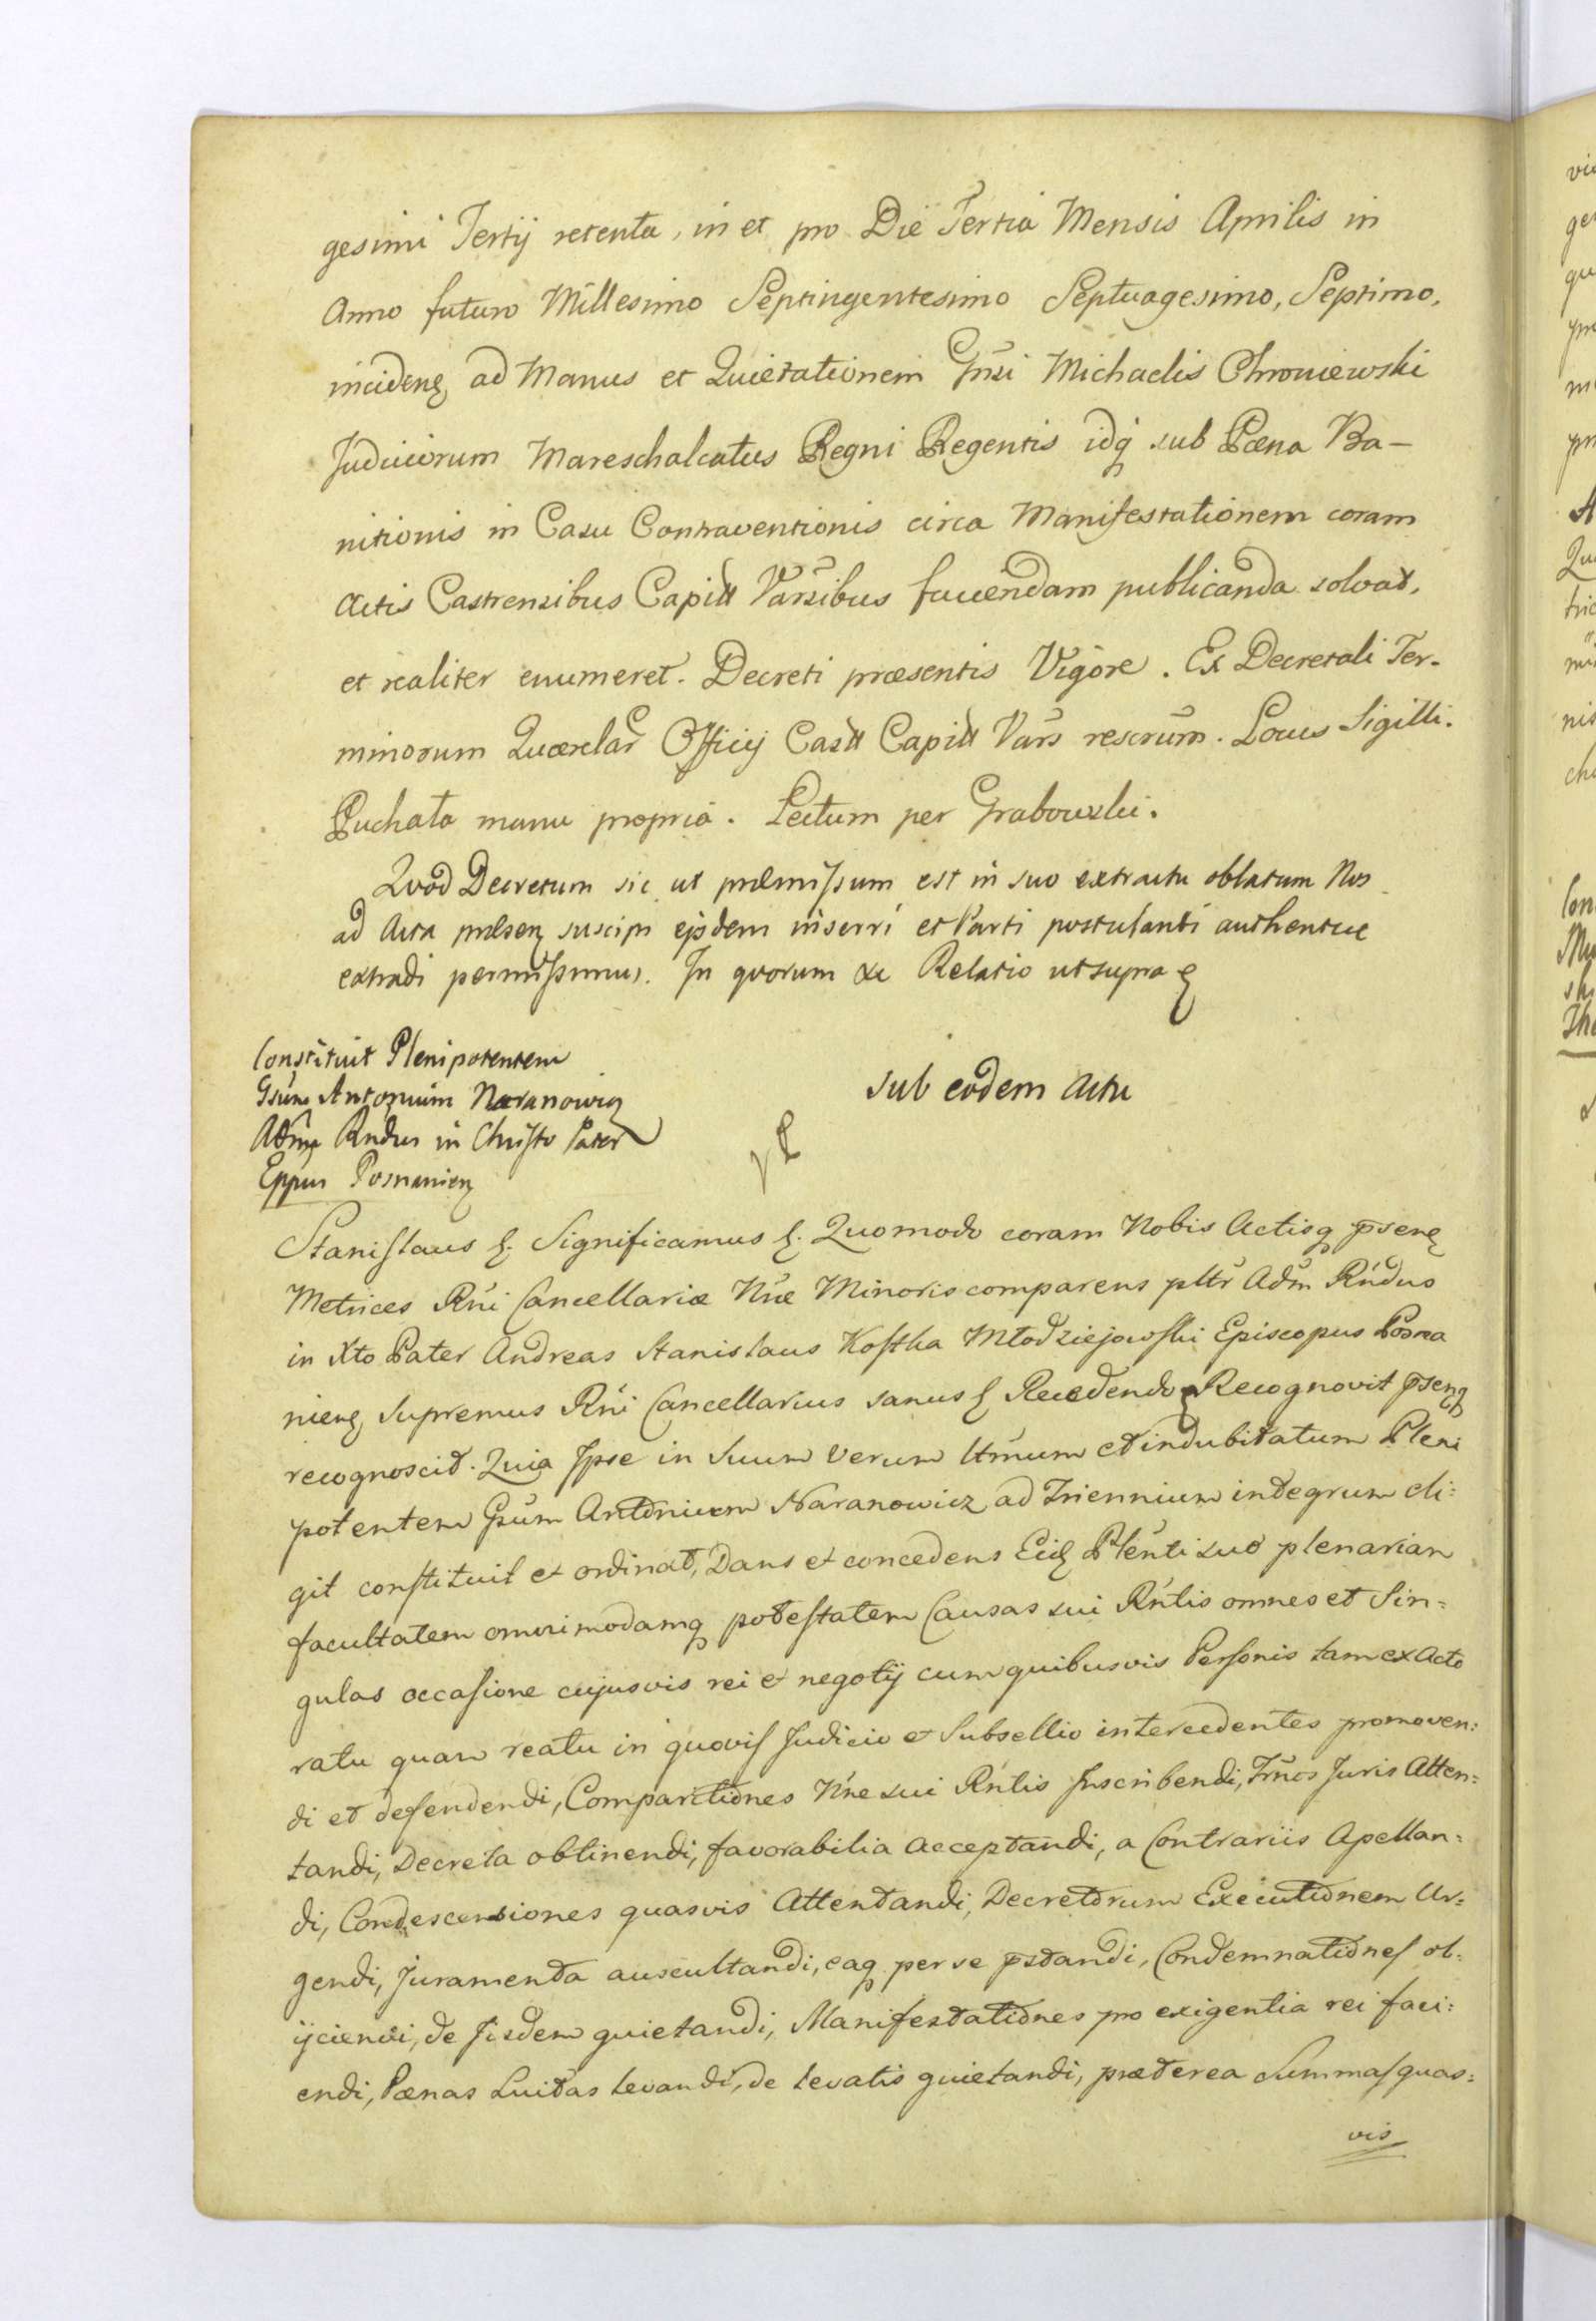 gesimi Tertij retenta, in et pro Die Tertia Mensis Aprilis in
Anno futuro Millesimo Septingentesimo Septuagesimo, Septimo,
inciden ad Manus et Quietationem Gnsi Michaelis Chroniewski
Judiciorum Mareschalcatus Regni Regentis idq sub Pæna Ba-
nitionis in Casu Contraventionis circa Manifestationem coram
Actis Castrensibus Capitt Varsibus faciendam publicanda solvat,
et realiter enumeret. Decreti præsentis Vigore. Ex Decretali Ter-
minorum Quærelar Officij Castt Capitt Vars rescrum. Locus Sigilli.
Puchata manu propria. Lectum per Grabowski.
Quod Decretum sic ut præmissum est in suo extractu oblatum Nos
ad Acta præsen suscipi ejsdem inserri et Parti postulanti authentice
extradi permissimus. In quorum &c Relatio ut supra
Constituit Plenipotentem
Gsum Antonium Naranowicz
Adme Rndus in Christo Pater
Eppus Posnanien
Sub eodem Actu
Stanislaus &. Significamus &. Quomodo coram Nobis Actisq psen
Metrices Rni Cancellariæ Nræ Minoris comparens pltr Adm Rndus
in Xto Pater Andreas Stanislaus Kostka Młodziejowski Episcopus Posna
nien Supremus Rni Cancellarius sanus & Recedendo Recognovit psenq
recognoscit. Quia Ipse in Suum Verum ltmum et indubitatum Pleni
potentem Gsum Antonium Naranowicz ad Triennium integrum eli=
git constituit et ordinat, Dans et concedens Eid Plenti suo plenariam
facultatem omnimodamq potestatem Causas sui Rntis omnes et Sin=
gulas occasione cujusvis rei et negotij cum quibusvis Personis tam ex Acto
ratu quam reatu in quovis Judicio et Subsellio intercedentes promoven=
di et defendendi, Comparitiones Nne sui Rntis Inscribendi, Trnos Juris Atten=
tandi, Decreta obtinendi, favorabilia acceptandi, a Contrariis Apellan=
di, Condescensiones quasvis Attentandi, Decretorum Executionem Ur=
gendi, Juramenta auscultandi, eaq per se pstandi, Condemnationes ob=
ijciendi, de Jisdem quietandi, Manifestationes pro exigentia rei faci=
endi, Pænas Luitas levandi, de levatis quietandi, præterea Summas quas=
vis